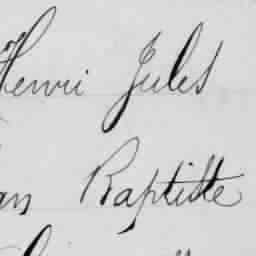 Henri Jules
an Baptiste